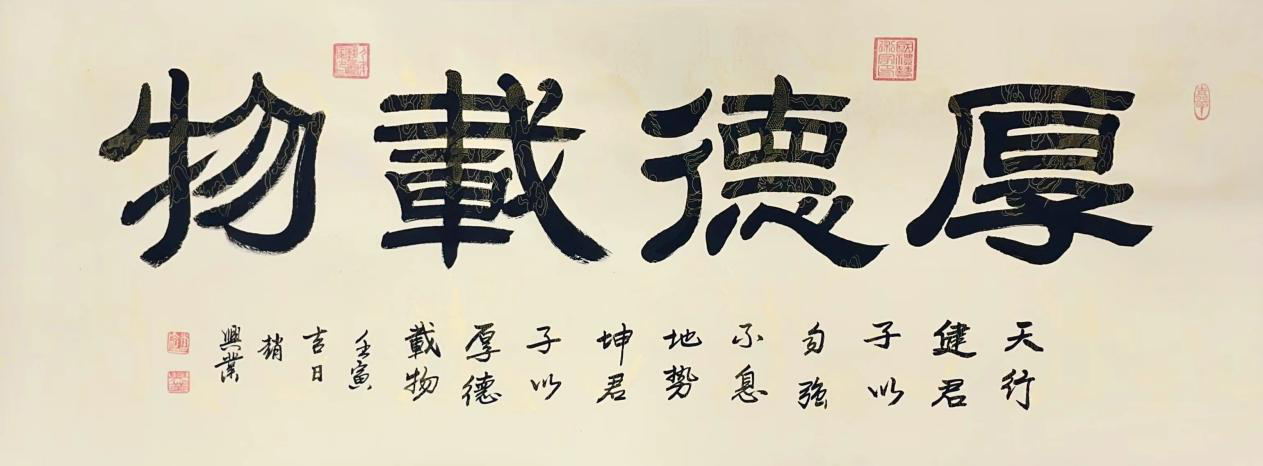 厚德載物
天行
健君
子以
自強
不息
地势
坤君
子以
厚德
載物
壬寅
吉日
趙
興業